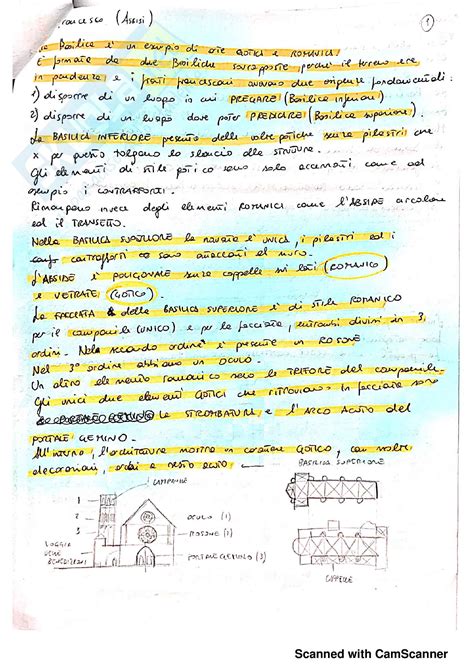 Francesco (Assisi)
1
La Basilica è un esempio di arte GOTICA e ROMANICA
È formata da due Basiliche sovrapposte perché il terreno era
in pendenza e i frati francescani avevano due esigenze fondamentali:
1) disporre di un luogo in cui PREGARE (Basilica inferiore)
2) disporre di un luogo dove poter PREDICARE (Basilica superiore).
La BASILICA INFERIORE presenta delle volte gotiche senza pilastri che
x per questo tolgono lo slancio alle strutture.
Gli elementi di stile gotico sono solo accennati come ad
esempio i CONTRAFFORTI.
Rimangono invece degli elementi ROMANICI come l'ABSIDE
ed il TRANSETTO.
Nella BASILICA SUPERIORE la navata è UNICA, i pilastri ed i
contrafforti sono attaccati al muro.
L'ABSIDE È POLIGONALE senza cappelle sui lati (ROMANICO)
e VETRATE (GOTICO).
La FACCIATA della BASILICA SUPERIORE è di stile ROMANICO
per il campanile (UNICO) e per la facciata, entrambi divisi in 3
ordini. Nel secondo ordine è presente un ROSONE
Nel 3° ordine abbiamo un OCULO.
Un altro elemento romanico sono le TRIFORE del campanile.
Gli unici due elementi GOTICI che ritroviamo in facciata sono
le STROMBATURE e l'ARCO ACUTO del
PORTALE GEMINO.
All'interno, l'architettura mostra un carattere GOTICO, con volte
decorazioni, archi a sesto acuto
BASILICA SUPERIORE
CAMPANILE
1
2
3
OCULO (1)
ROSONE (2)
PORTALE GEMINO (3)
LOGGIA
DELLE
BENEDIZIONI
CAPPELLE
Scanned with CamScanner